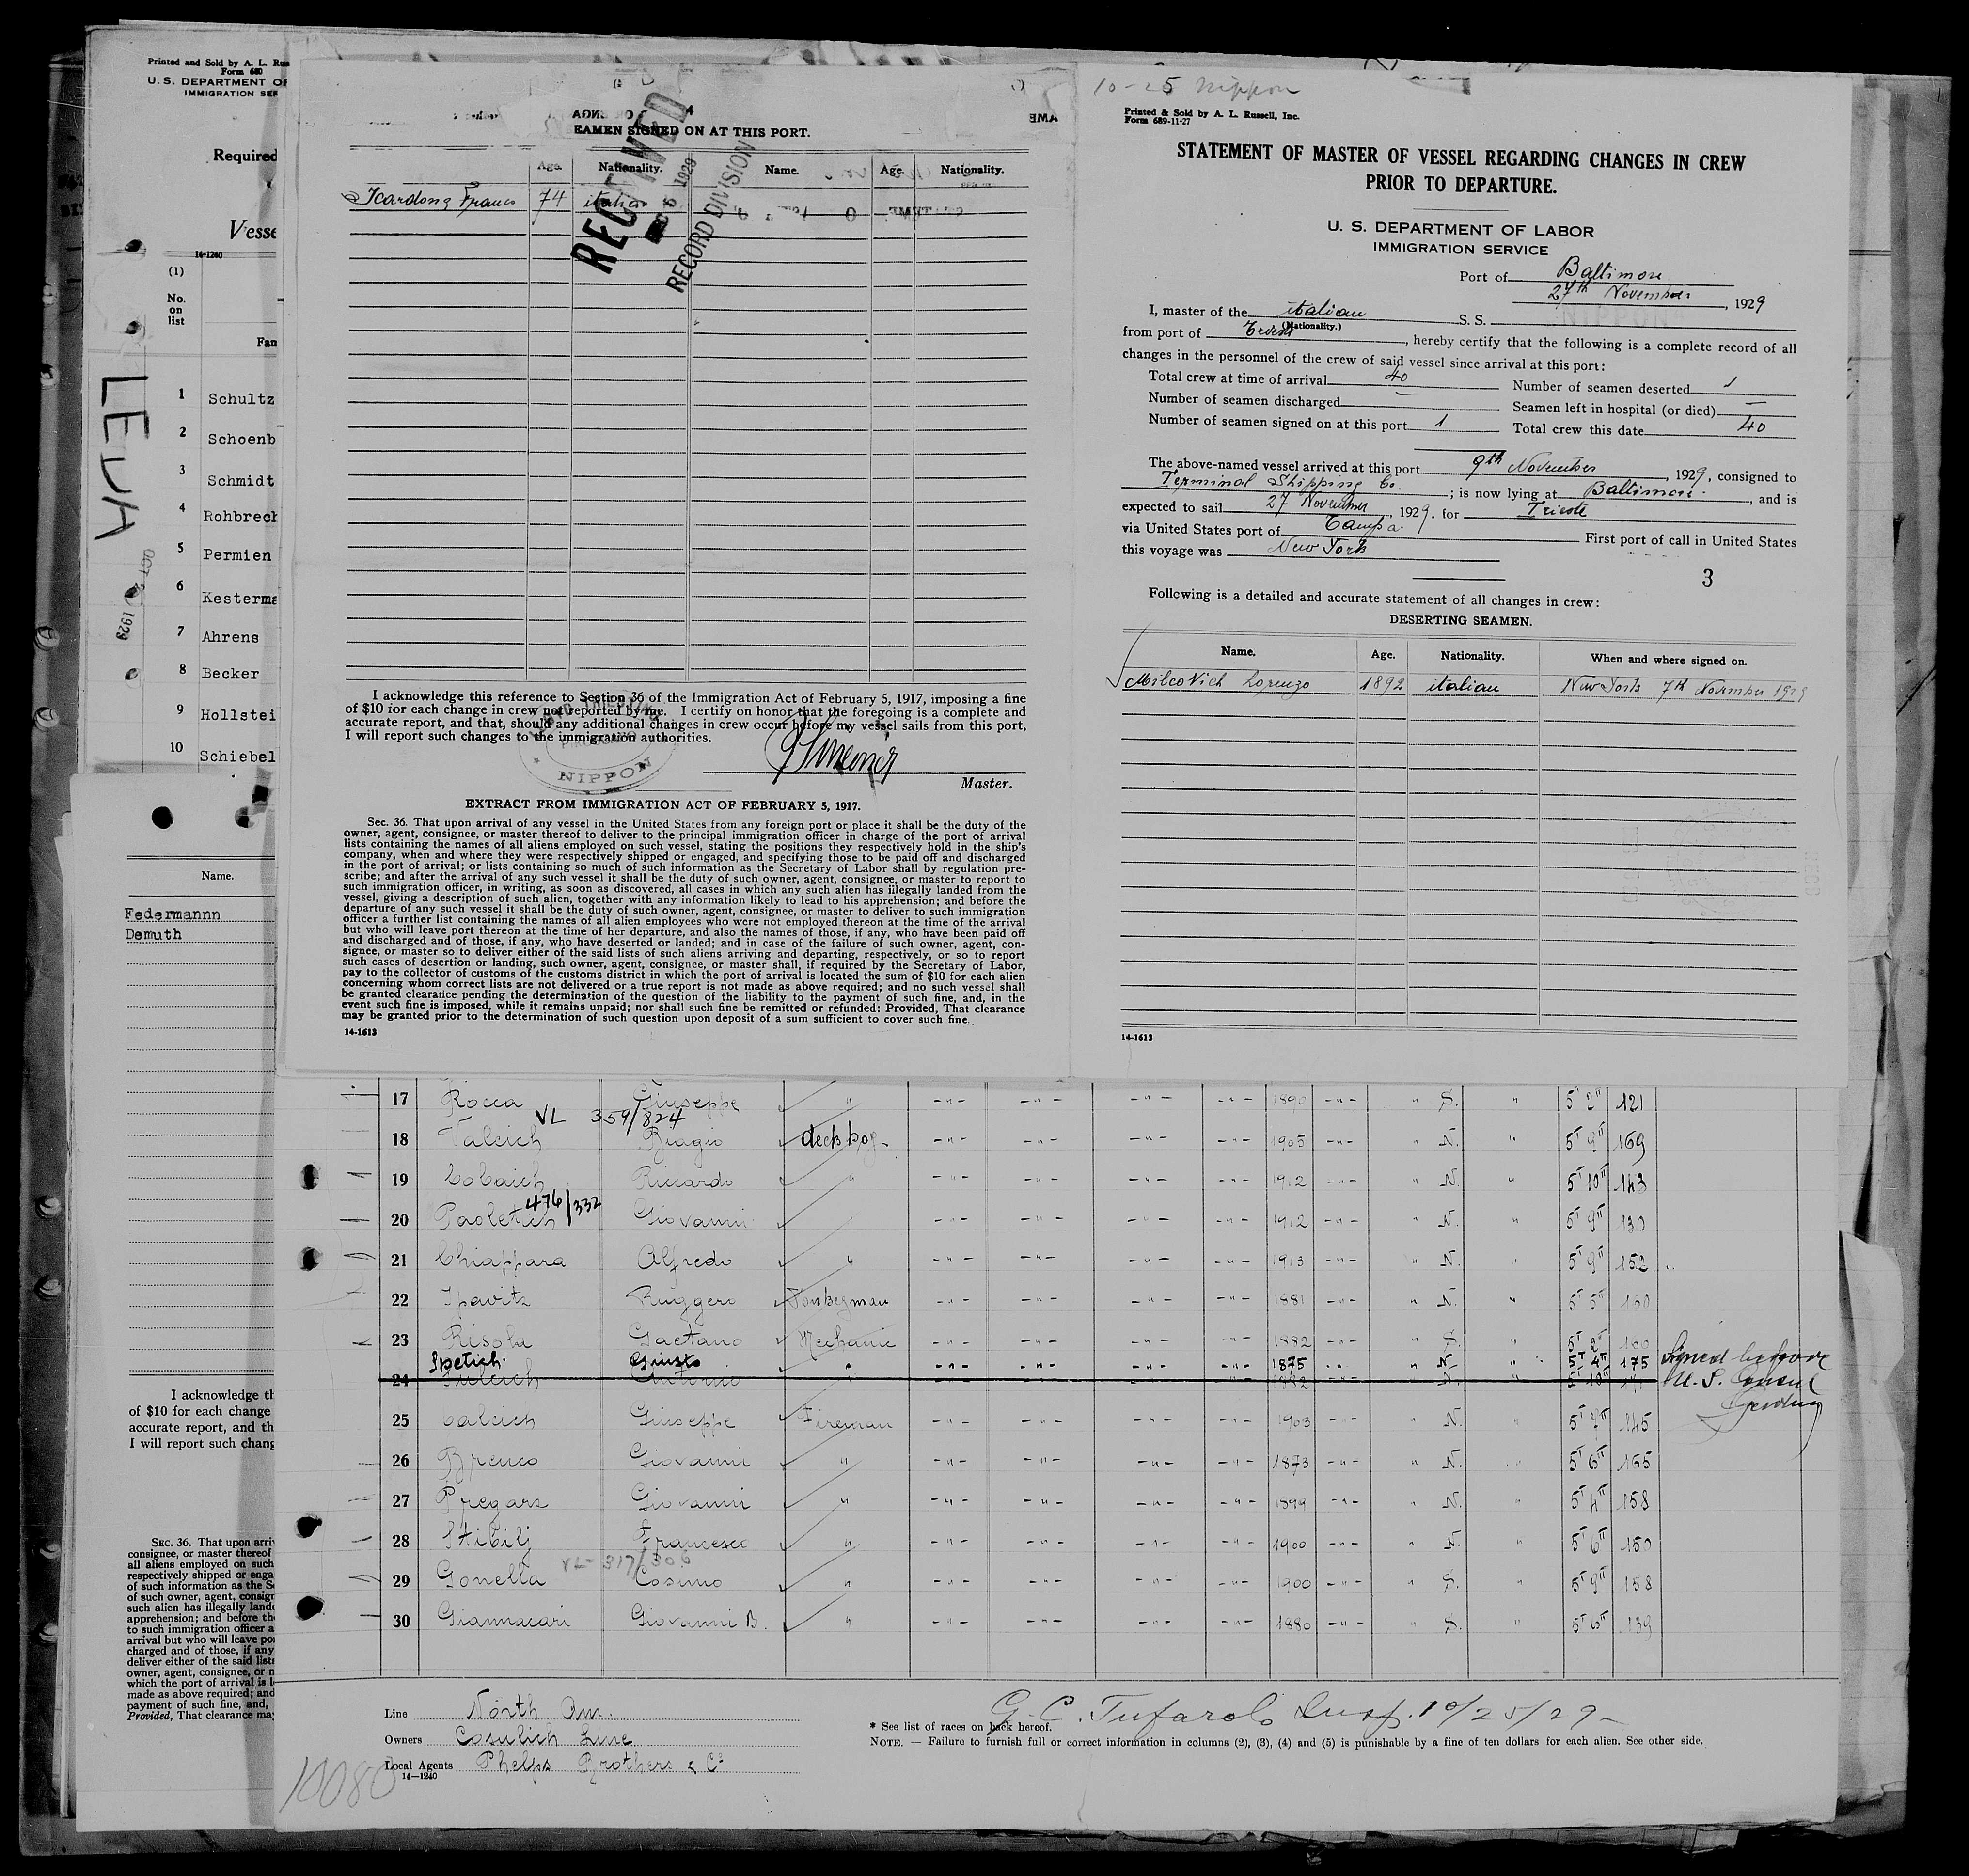 Printed and Sold by A. L. Rus
Form 680
U. S. DEPARTMENT OF
IMMIGRATION SER
Required
Vesse
14-1240
(1)
No.
on
list
Fam
1 Schultz
2 Schoenb
3 Schmidt
4 Rohbrech
5 Permien
6 Kesterma
7 Ahrens
8 Becker
9 Hollstei
10 Schiebel
OCT 1929
Name.
Federmannn
Demuth
I acknowledge th
of $10 for each change
accurate report, and th
I will report such chang
SEC. 36. That upon arri
consignee, or master thereof
all aliens employed on such
respectively shipped or enga
of such information as the Se
of such owner, agent, consign
such alien has illegally lande
apprehension; and before the
to such immigration officer a
arrival but who will leave por
charged and of those, if any
deliver either of the said lists
owner, agent, consignee, or m
which the port of arrival is l
made as above required; and
payment of such fine, and,
Provided, That clearance may
4
EAMEN SIGNED ON AT THIS PORT.
RECEIVED
1929
RECORD DIVISION
Age. Nationality. Name. Age. Nationality.
Franco 74 italian
I acknowledge this reference to Section 36 of the Immigration Act of February 5, 1917, imposing a fine
of $10 for each change in crew not reported by me. I certify on honor that the foregoing is a complete and
accurate report, and that, should any additional changes in crew occur before my vessel sails from this port,
I will report such changes to the immigration authorities.
NIPPON
Master.
EXTRACT FROM IMMIGRATION ACT OF FEBRUARY 5, 1917.
Sec. 36. That upon arrival of any vessel in the United States from any foreign port or place it shall be the duty of the
owner, agent, consignee, or master thereof to deliver to the principal immigration officer in charge of the port of arrival
lists containing the names of all aliens employed on such vessel, stating the positions they respectively hold in the ship's
company, when and where they were respectively shipped or engaged, and specifying those to be paid off and discharged
in the port of arrival; or lists containing so much of such information as the Secretary of Labor shall by regulation pre-
scribe; and after the arrival of any such vessel it shall be the duty of such owner, agent, consignee, or master to report to
such immigration officer, in writing, as soon as discovered, all cases in which any such alien has illegally landed from the
vessel, giving a description of such alien, together with any information likely to lead to his apprehension; and before the
departure of any such vessel it shall be the duty of such owner, agent, consignee, or master to deliver to such immigration
officer a further list containing the names of all alien employees who were not employed thereon at the time of the arrival
but who will leave port thereon at the time of her departure, and also the names of those, if any, who have been paid off
and discharged and of those, if any, who have deserted or landed; and in case of the failure of such owner, agent, con-
signee, or master so to deliver either of the said lists of such aliens arriving and departing, respectively, or so to report
such cases of desertion or landing, such owner, agent, consignee, or master shall, if required by the Secretary of Labor,
pay to the collector of customs of the customs district in which the port of arrival is located the sum of $10 for each alien
concerning whom correct lists are not delivered or a true report is not made as above required; and no such vessel shall
be granted clearance pending the determination of the question of the liability to the payment of such fine, and, in the
event such fine is imposed, while it remains unpaid; nor shall such fine be remitted or refunded: Provided, That clearance
may be granted prior to the determination of such question upon deposit of a sum sufficient to cover such fine.
14-1613
10-25 Nippon
Printed & Sold by A. L. Russell, Inc.
Form 689-11-27
STATEMENT OF MASTER OF VESSEL REGARDING CHANGES IN CREW
PRIOR TO DEPARTURE.
U. S. DEPARTMENT OF LABOR
IMMIGRATION SERVICE
Port of Baltimore
27th November, 1929
I, master of the italian S. S. NIPPON
(Nationality.)
from port of Trieste, hereby certify that the following is a complete record of all
changes in the personnel of the crew of said vessel since arrival at this port:
Total crew at time of arrival 40 Number of seamen deserted 1
Number of seamen discharged — Seamen left in hospital (or died) —
Number of seamen signed on at this port 1 Total crew this date 40
The above-named vessel arrived at this port 9th November, 1929, consigned to
Terminal Shipping Co.; is now lying at Baltimore, and is
expected to sail 27 November, 1929. for Trieste
via United States port of Tampa. First port of call in United States
this voyage was New York
3
Following is a detailed and accurate statement of all changes in crew:
DESERTING SEAMEN.
Name. Age. Nationality. When and where signed on.
Milcovich Lorenzo 1892 italian New York 7th November 1929
14-1613
17 Rocca Giuseppe " 1890 " S. " 5' 2" 121
VL 359/824
18 Valcich Biagio deck boy 1905 " N. " 5' 9" 169
19 Riccardo " 1912 " N. " 5' 10" 143
476/332
20 Paoletich Giovanni " 1912 " N. " 5' 9" 130
21 Chiappara Alfredo " 1913 " N. " 5' 9" 152
22 Ruggero Donkeyman 1881 " N. " 5' 5" 160
23 Risola Gaetano Mechanic 1882 " S. " 5' 2" 160
Spetich Giusto " 1875 " N. " 5' 4" 175 Signed before
24 Antonio U. S. Consul
25 Calcich Giuseppe Fireman 1903 " N. 5' 9" 145
26 Brenco Giovanni " 1873 " N. 5' 6" 155
27 Pregarz Giovanni " 1899 " N. " 5' 4" 158
28 Stibilj Francesco " 1900 " N. " 5' 6" 150
VL-317/306
29 Gonella Cosimo " 1900 " S. " 5' 9" 158
30 Giannacari Giovanni B. " 1880 " S. " 5' 6" 139
Line North Am.
Owners Cosulich Line
Local Agents Phelps Brothers & Co
14—1240
10080
G. C. Tufarolo Insp. 10/25/29
* See list of races on back hereof.
NOTE. — Failure to furnish full or correct information in columns (2), (3), (4) and (5) is punishable by a fine of ten dollars for each alien. See other side.